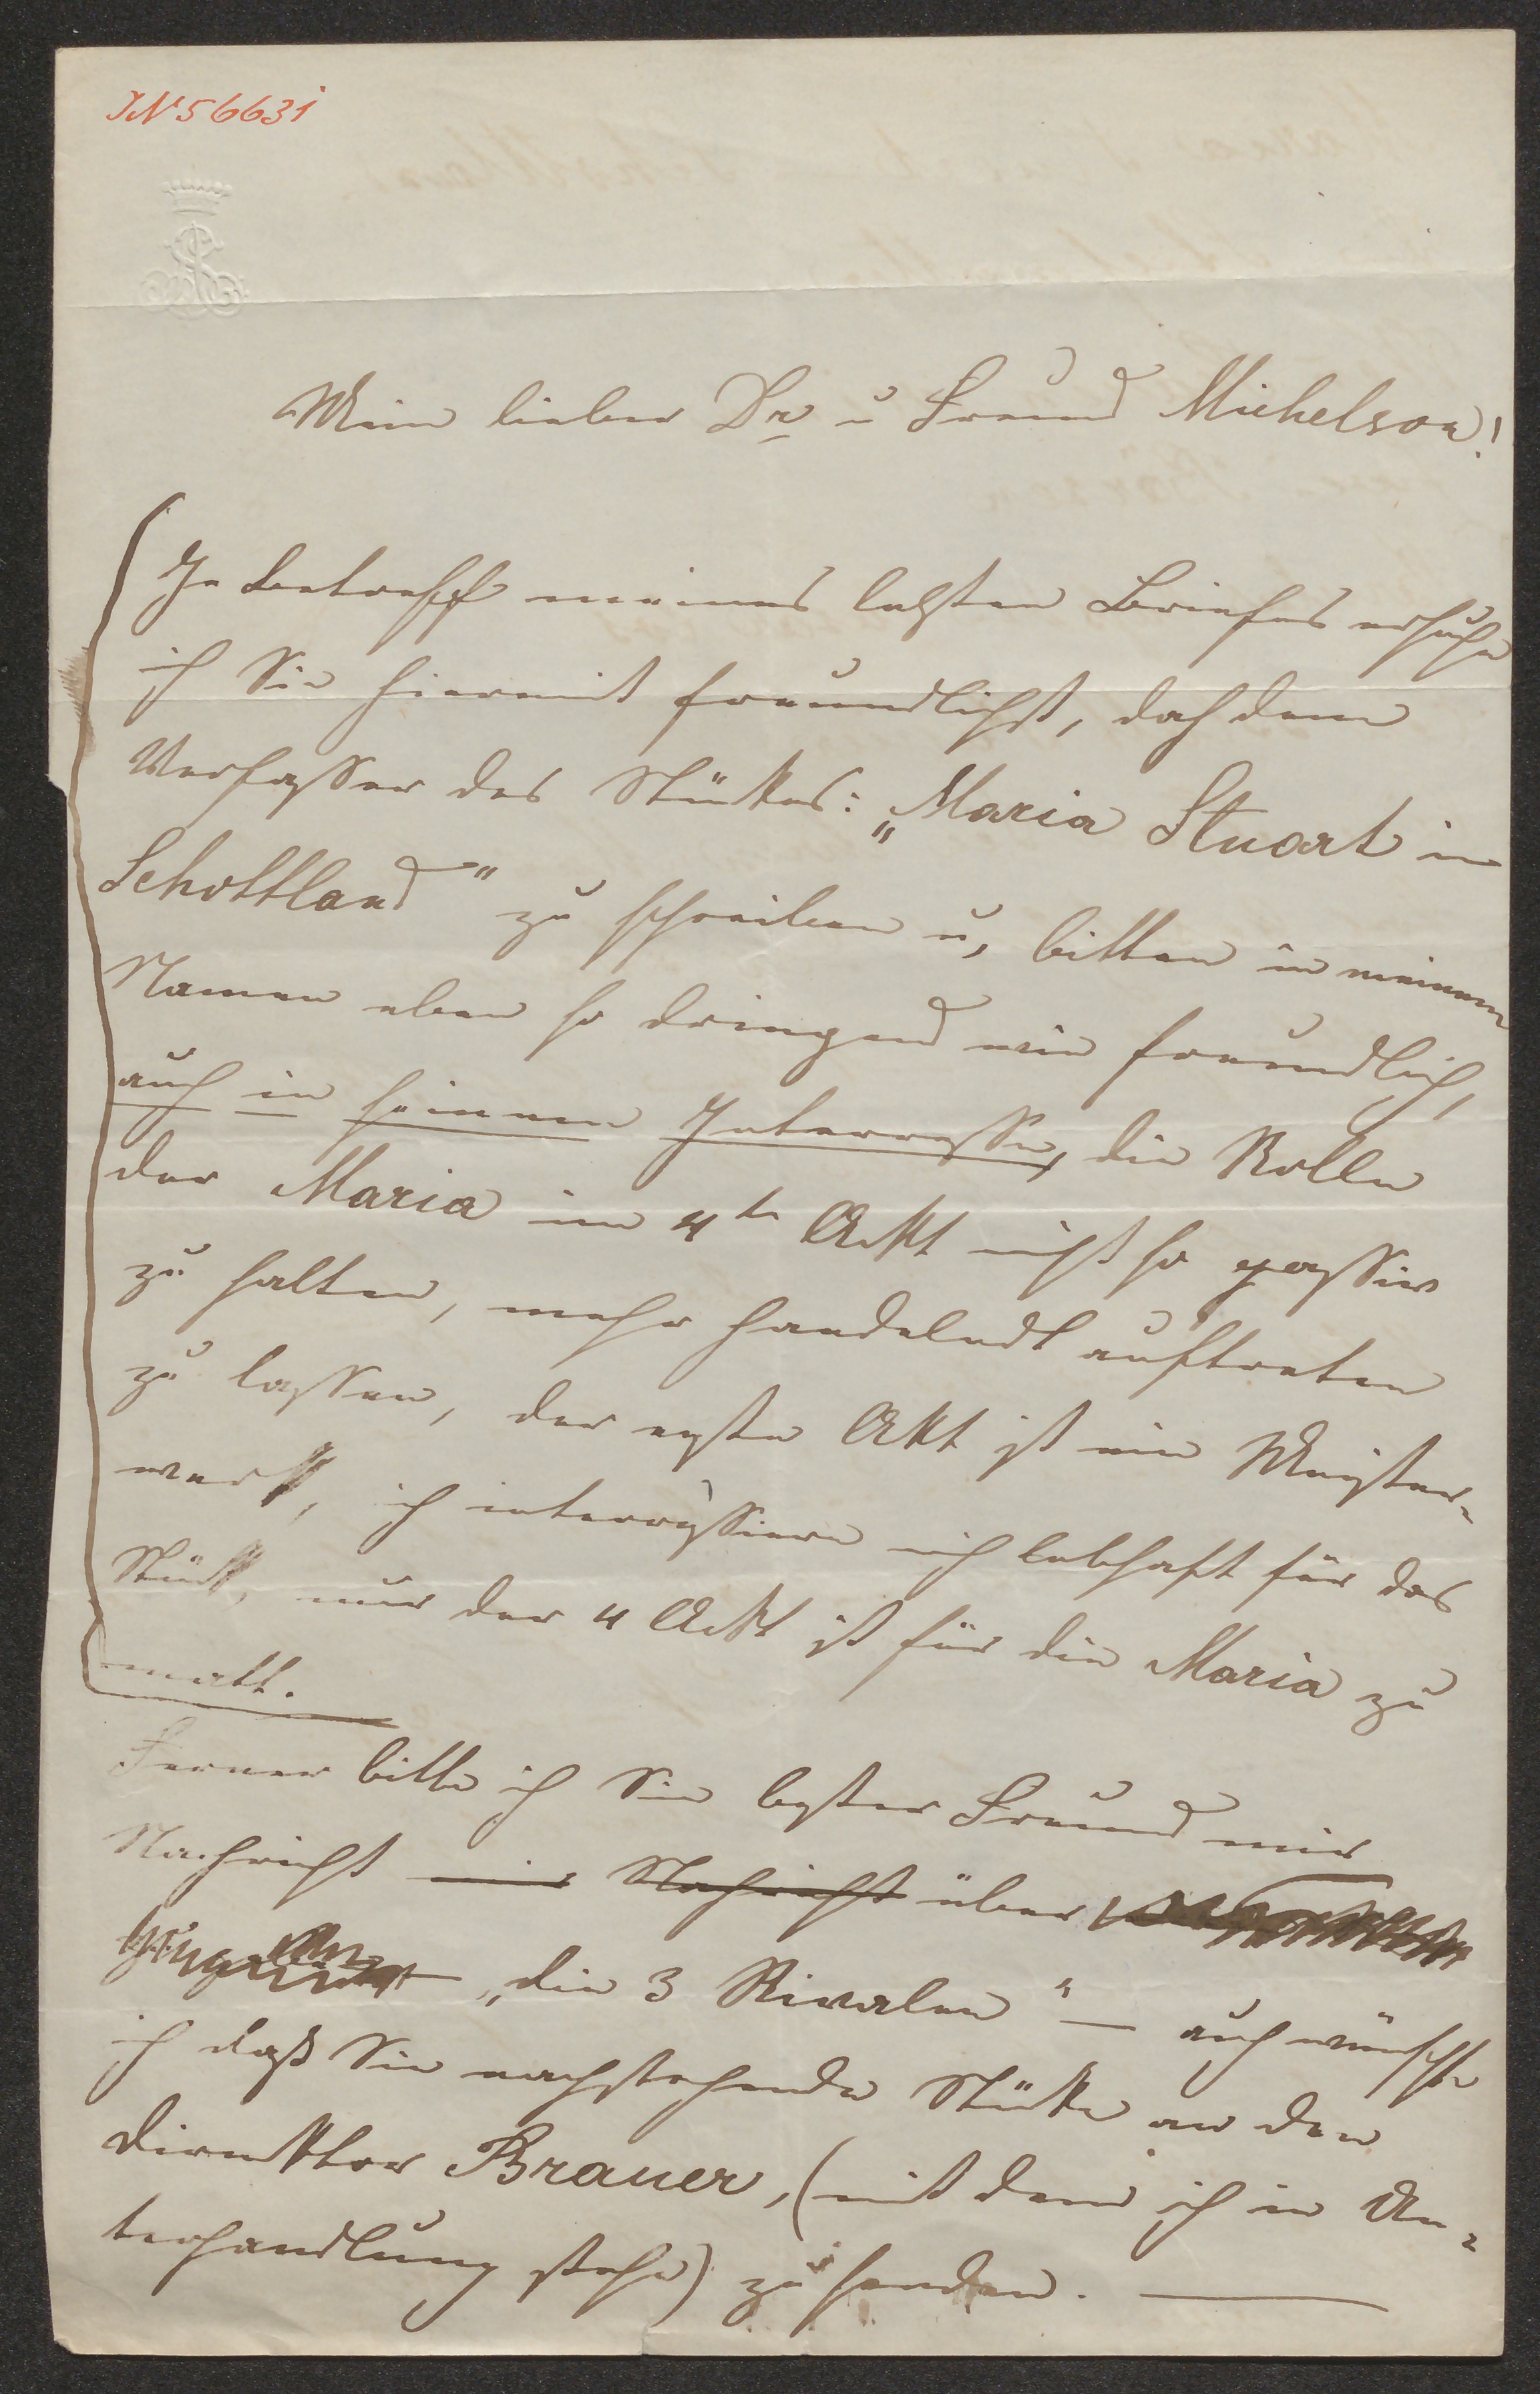 IN 56631
Mein lieber Dr u Freund Michelson!
In Betreff meines letzten Briefes ersuche
ich Sie hiermit freundlichst, doch dem
Verfasser des Stückes: „Maria Stuart in
Schottland" zu schreiben u, bitten in meinem
Namen eben so dringend wie freundlich,
auch in seinem Interresse, die Rolle
der Maria im 4te Ackt nicht so passiv
zu halten, mehr handelndt auftreten
zu lassen, der erste Akt ist ein Meister-
werk, ich interressiere mich lebhaft für das
Stück, nur der 4 Ackt ist für die Maria zu
matt.
Ferner bitte ich Sie bester Freund mir
Nachricht mir Nachricht über
„die 3 Rivalen" — auch wünschte
ich daß Sie nachstehende Stücke an den
Direktor Brauer, (mit dem ich in Un-
terhandlung stehe) zu senden. —